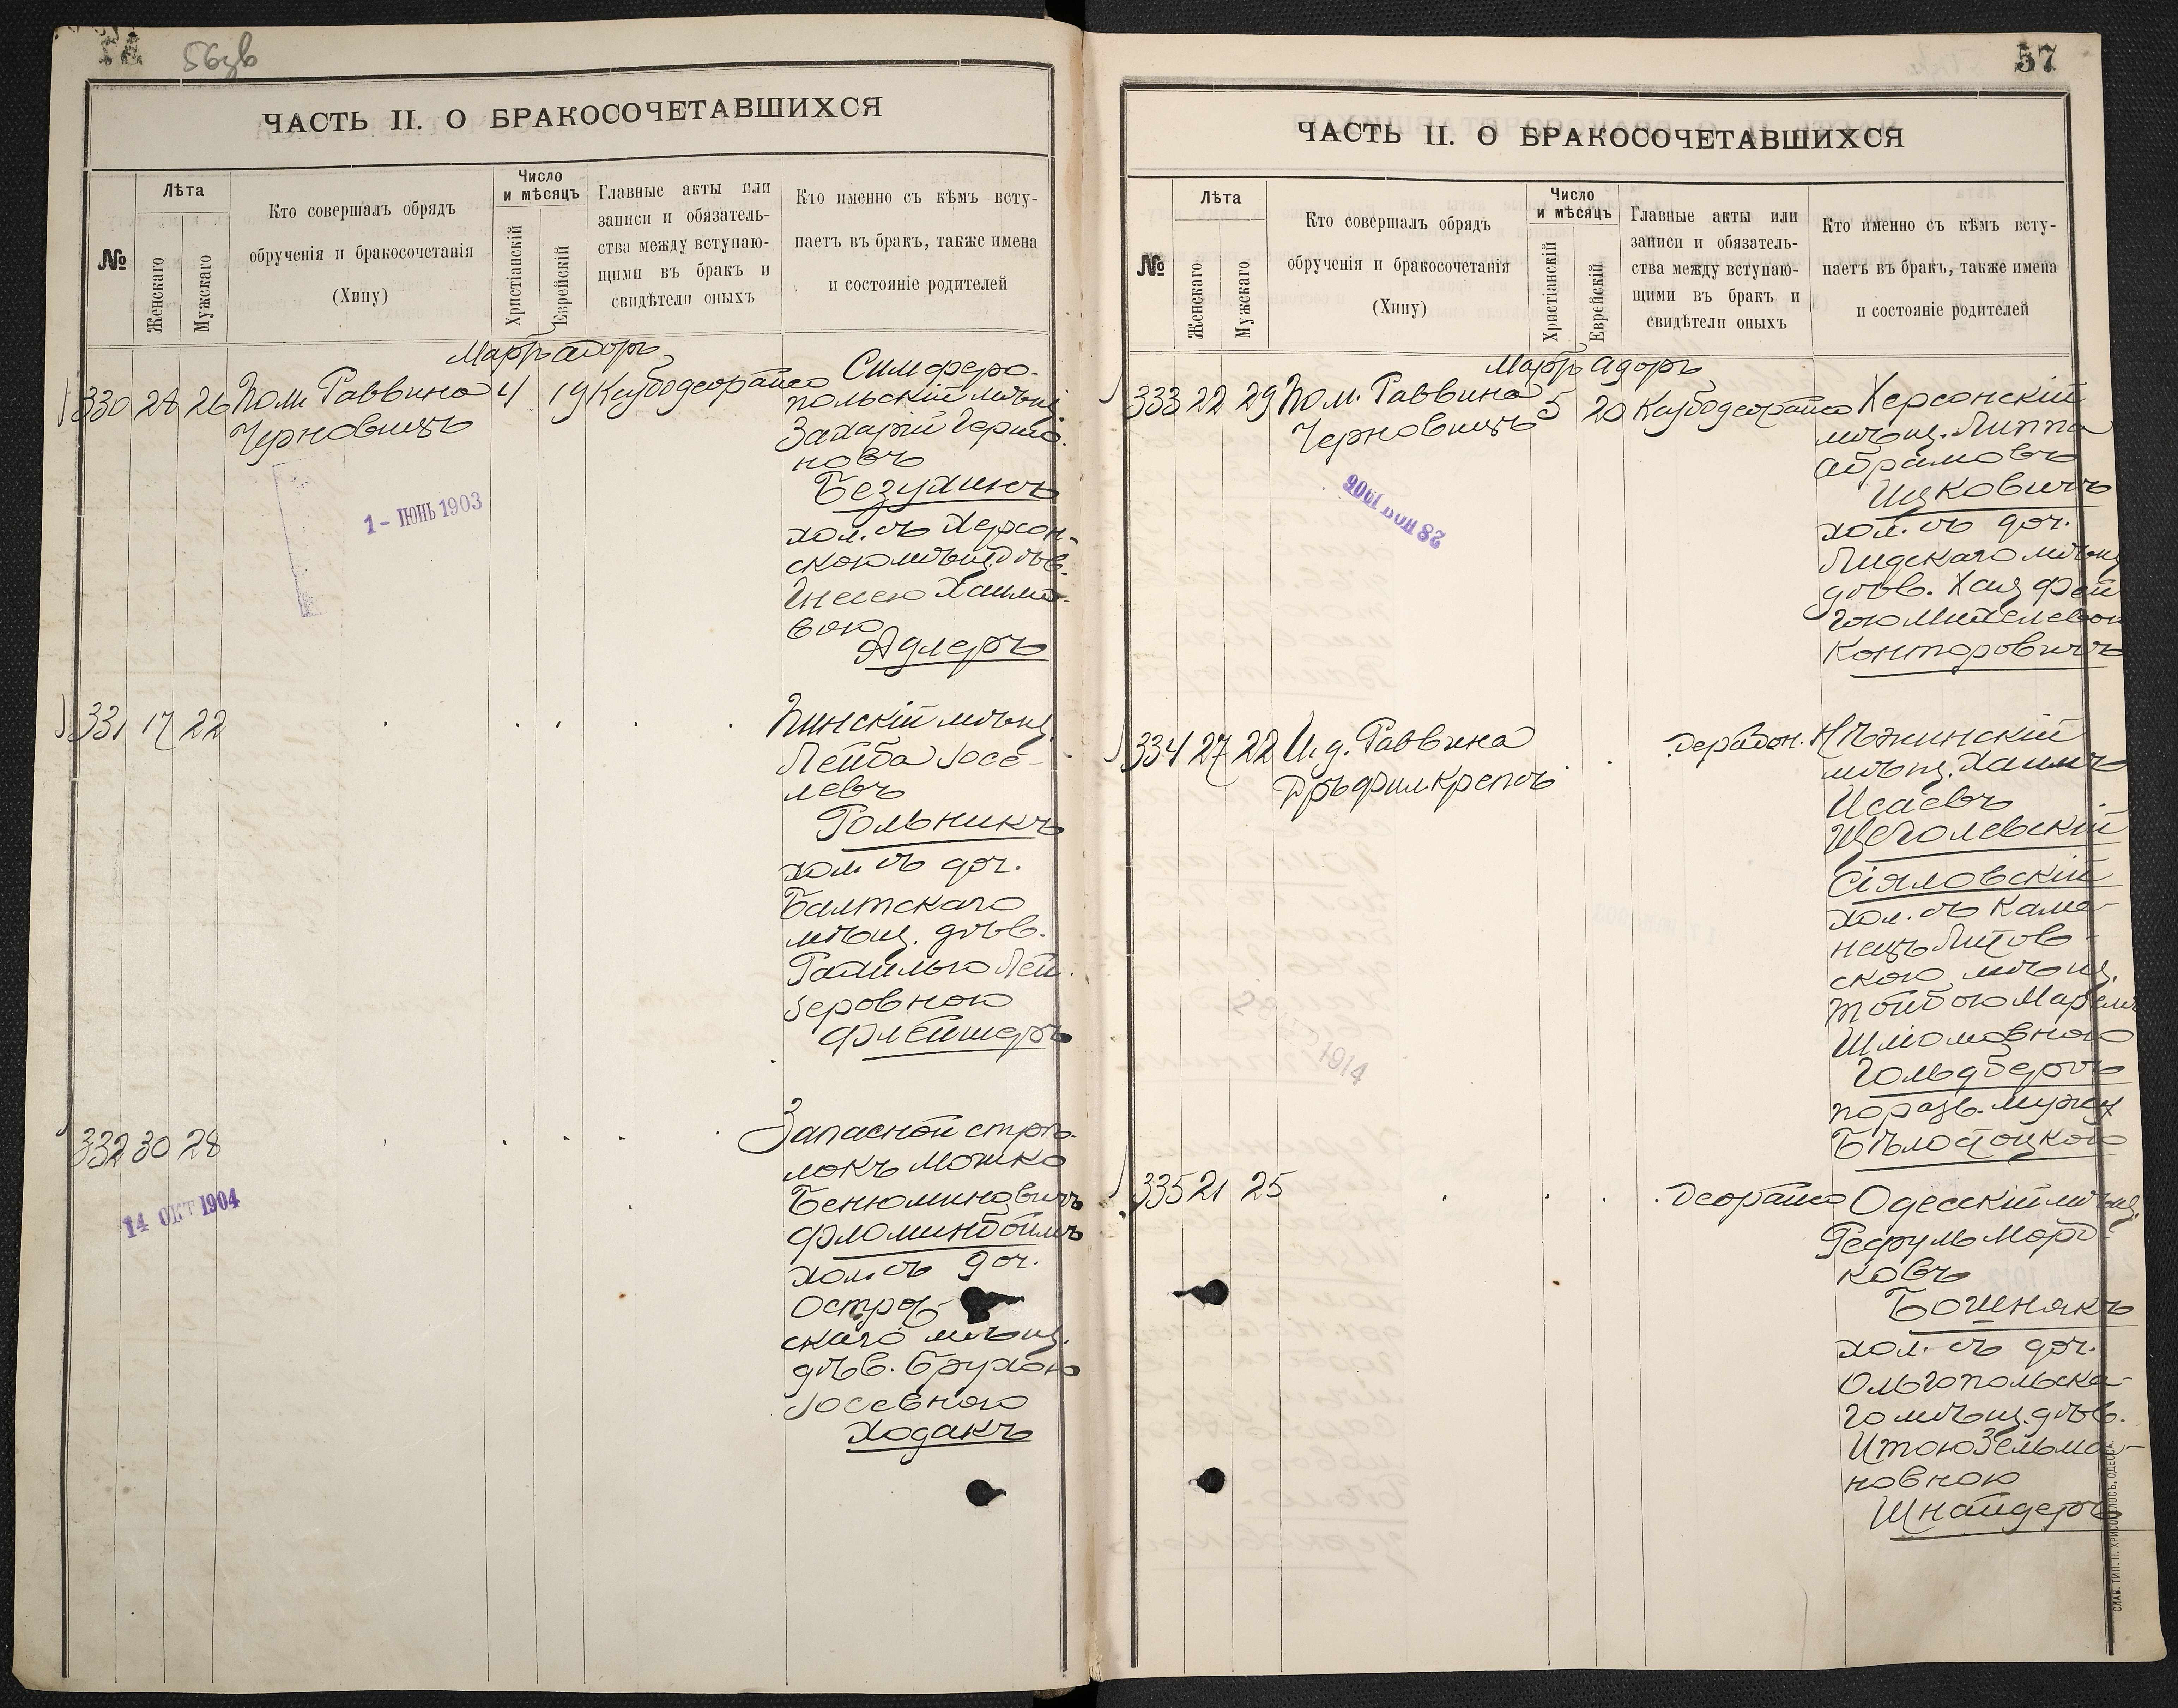 56зв
ЧАСТЬ II. О БРАКОСОЧЕТАВШИХСЯ
№
Лѣта
Женскаго
Мужскаго
Кто совершалъ обрядъ
обрученія и бракосочетанія
(Хипу)
Число
и мѣсяцъ
Христіанскій
Еврейскій
Главные акты или
записи и обязатель-
ства между вступаю-
щими въ бракъ и
свидѣтели оныхъ
Кто именно съ кѣмъ всту-
паетъ въ бракъ, также имена
и состояніе родителей
Мартъ Адоръ
330 28 26 Пом. Раввина 4 19
Черновицъ
Симферо-
польскій мѣщ.
Захарій Гершо-
новъ
Безухинъ
хол. съ Херсон-
скою мѣщ. дѣв.
Гнесею Хаимо-
вою
Адлеръ
1 - ІЮНЬ 1903
331 17 22
Пинскій мѣщ.
Лейба Іосе-
левъ
Рольникъ
хол. съ доч.
Балтскаго
мѣщ. дѣв.
Рахилью Лей-
зеровною
Флейшеръ
332 30 28
Запасной стрѣ-
локъ Мошко
Бенюминовичъ
Фломинбоймъ
хол. съ доч.
Остро
скаго мѣщ.
дѣв. Брухою
Іосевною
Ходакъ
14 ОКТ 1904
57
ЧАСТЬ II. О БРАКОСОЧЕТАВШИХСЯ
№
Лѣта
Женскаго
Мужскаго
Кто совершалъ обрядъ
обрученія и бракосочетанія
(Хипу)
Число
и мѣсяцъ
Христіанскій
Еврейскій
Главные акты или
записи и обязатель-
ства между вступаю-
щими въ бракъ и
свидѣтели оныхъ
Кто именно съ кѣмъ всту-
паетъ въ бракъ, также имена
и состояніе родителей
Мартъ Адоръ
333 22 29 Пом. Раввина 5 20
Черновицъ
Херсонскій
мѣщ. Липпа
Абрамовъ
Ицковичъ
хол. съ доч.
Лидскаго мѣщ.
дѣв. Хая Фей
гою Михелевою
Конторовичъ
28 НОЯ 1906
334 27 22 И. д. Раввина
Дръ фил. Крепсъ
Нѣжинскій
мѣщ. Хаимъ
Исаевъ
Щеголевскій
Сіяловскій
хол. съ Каме-
нецъ Литов-
скою мѣщ.
Тойбою
Шліомовною
Гольдбергъ
по разв. мужу
Бѣлостоцкою
1914
335 21 25
Одесскій мѣщ.
Рефуль Морд-
ковъ
Бошнякъ
хол. съ доч.
Ольгопольска-
го мѣщ. дѣв.
Итою Зельма-
новною
Шнайдеръ